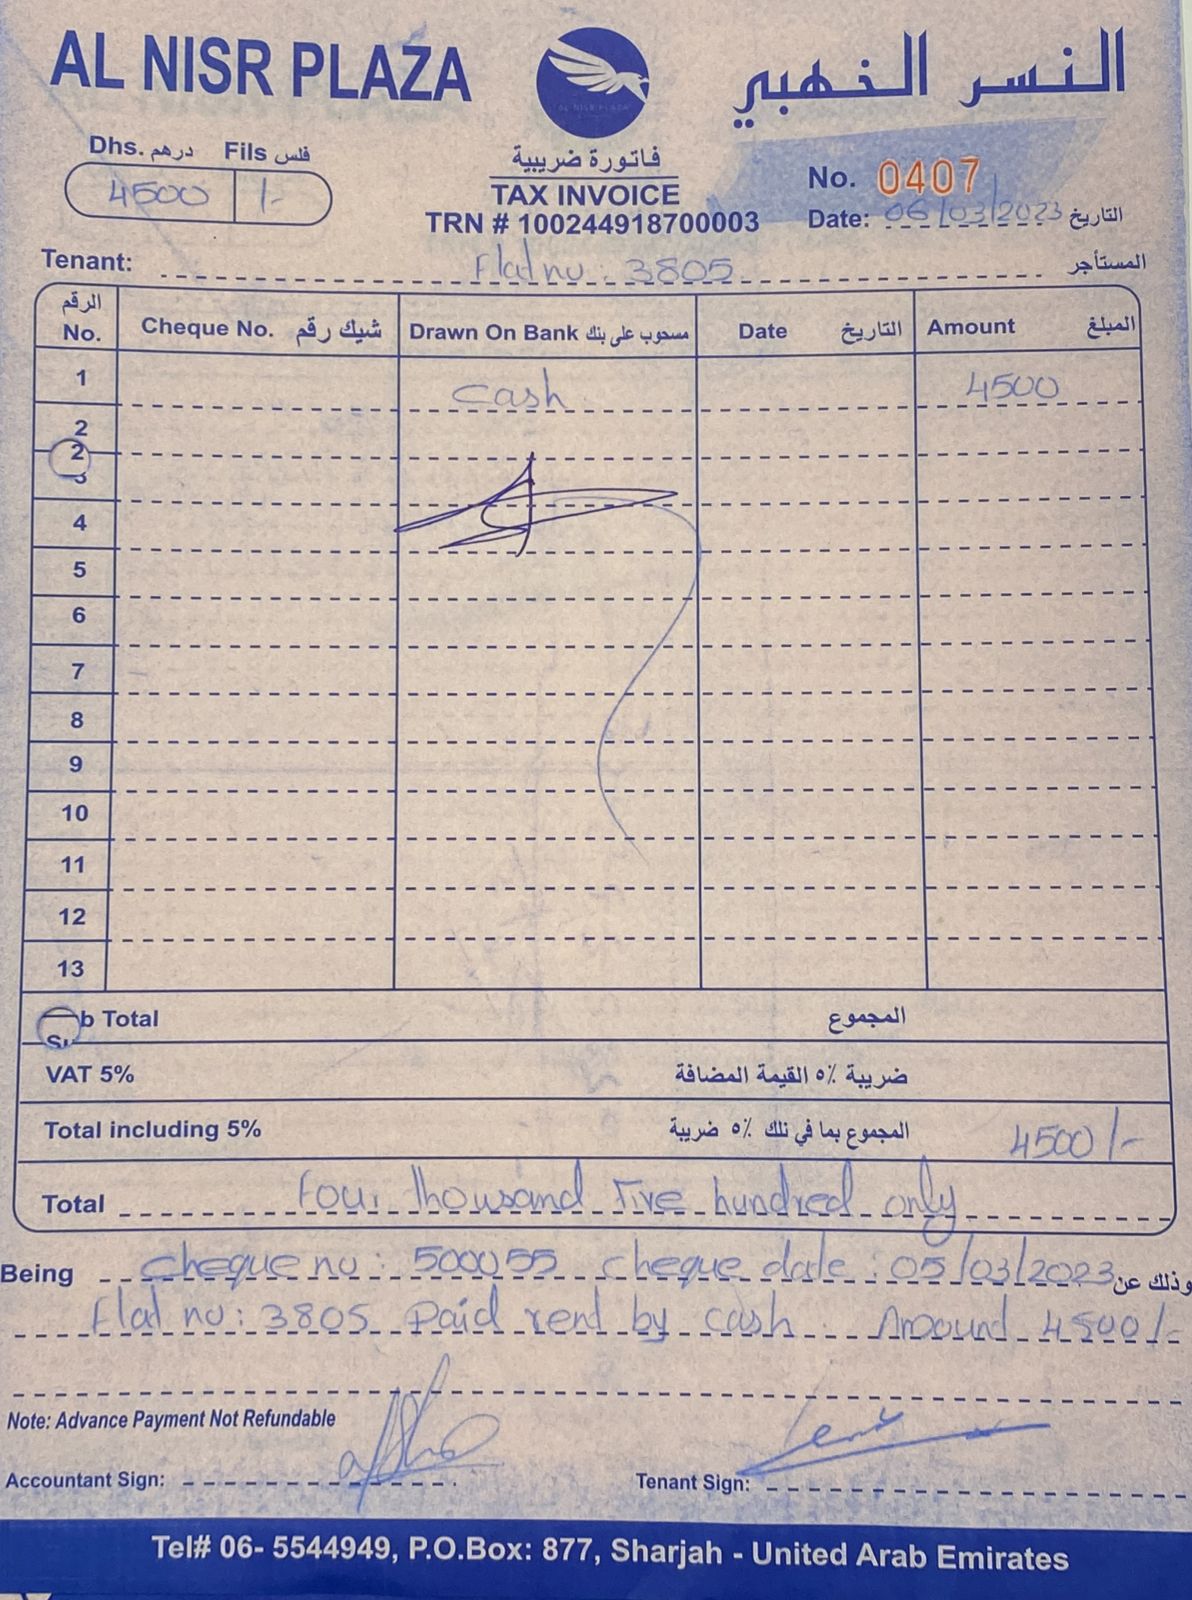 AL NISR PLAZA
النسر الذهبي
AL NISR PLAZA
Dhs. درهم Fils فلس
4500 /-
فاتورة ضريبية
TAX INVOICE
TRN # 100244918700003
No. 0407
Date: 06/03/2023 التاريخ
Tenant: Flat no: 3805 المستأجر
الرقم No. Cheque No. شيك رقم Drawn On Bank مسحوب على بنك Date التاريخ Amount المبلغ
1 Cash 4500
2
2
3
4
5
6
7
8
9
10
11
12
13
b Total المجموع
VAT 5% ضريبة ٪٥ القيمة المضافة
Total including 5% المجموع بما في ذلك ٪٥ ضريبة 4500/-
Total Four Thousand Five hundred only
Being cheque no: 500055 cheque date: 05/03/2023 وذلك عن
Flat no: 3805 Paid rent by cash Amount 4500/-
Note: Advance Payment Not Refundable
Accountant Sign:
Tenant Sign:
Tel# 06- 5544949, P.O.Box: 877, Sharjah - United Arab Emirates